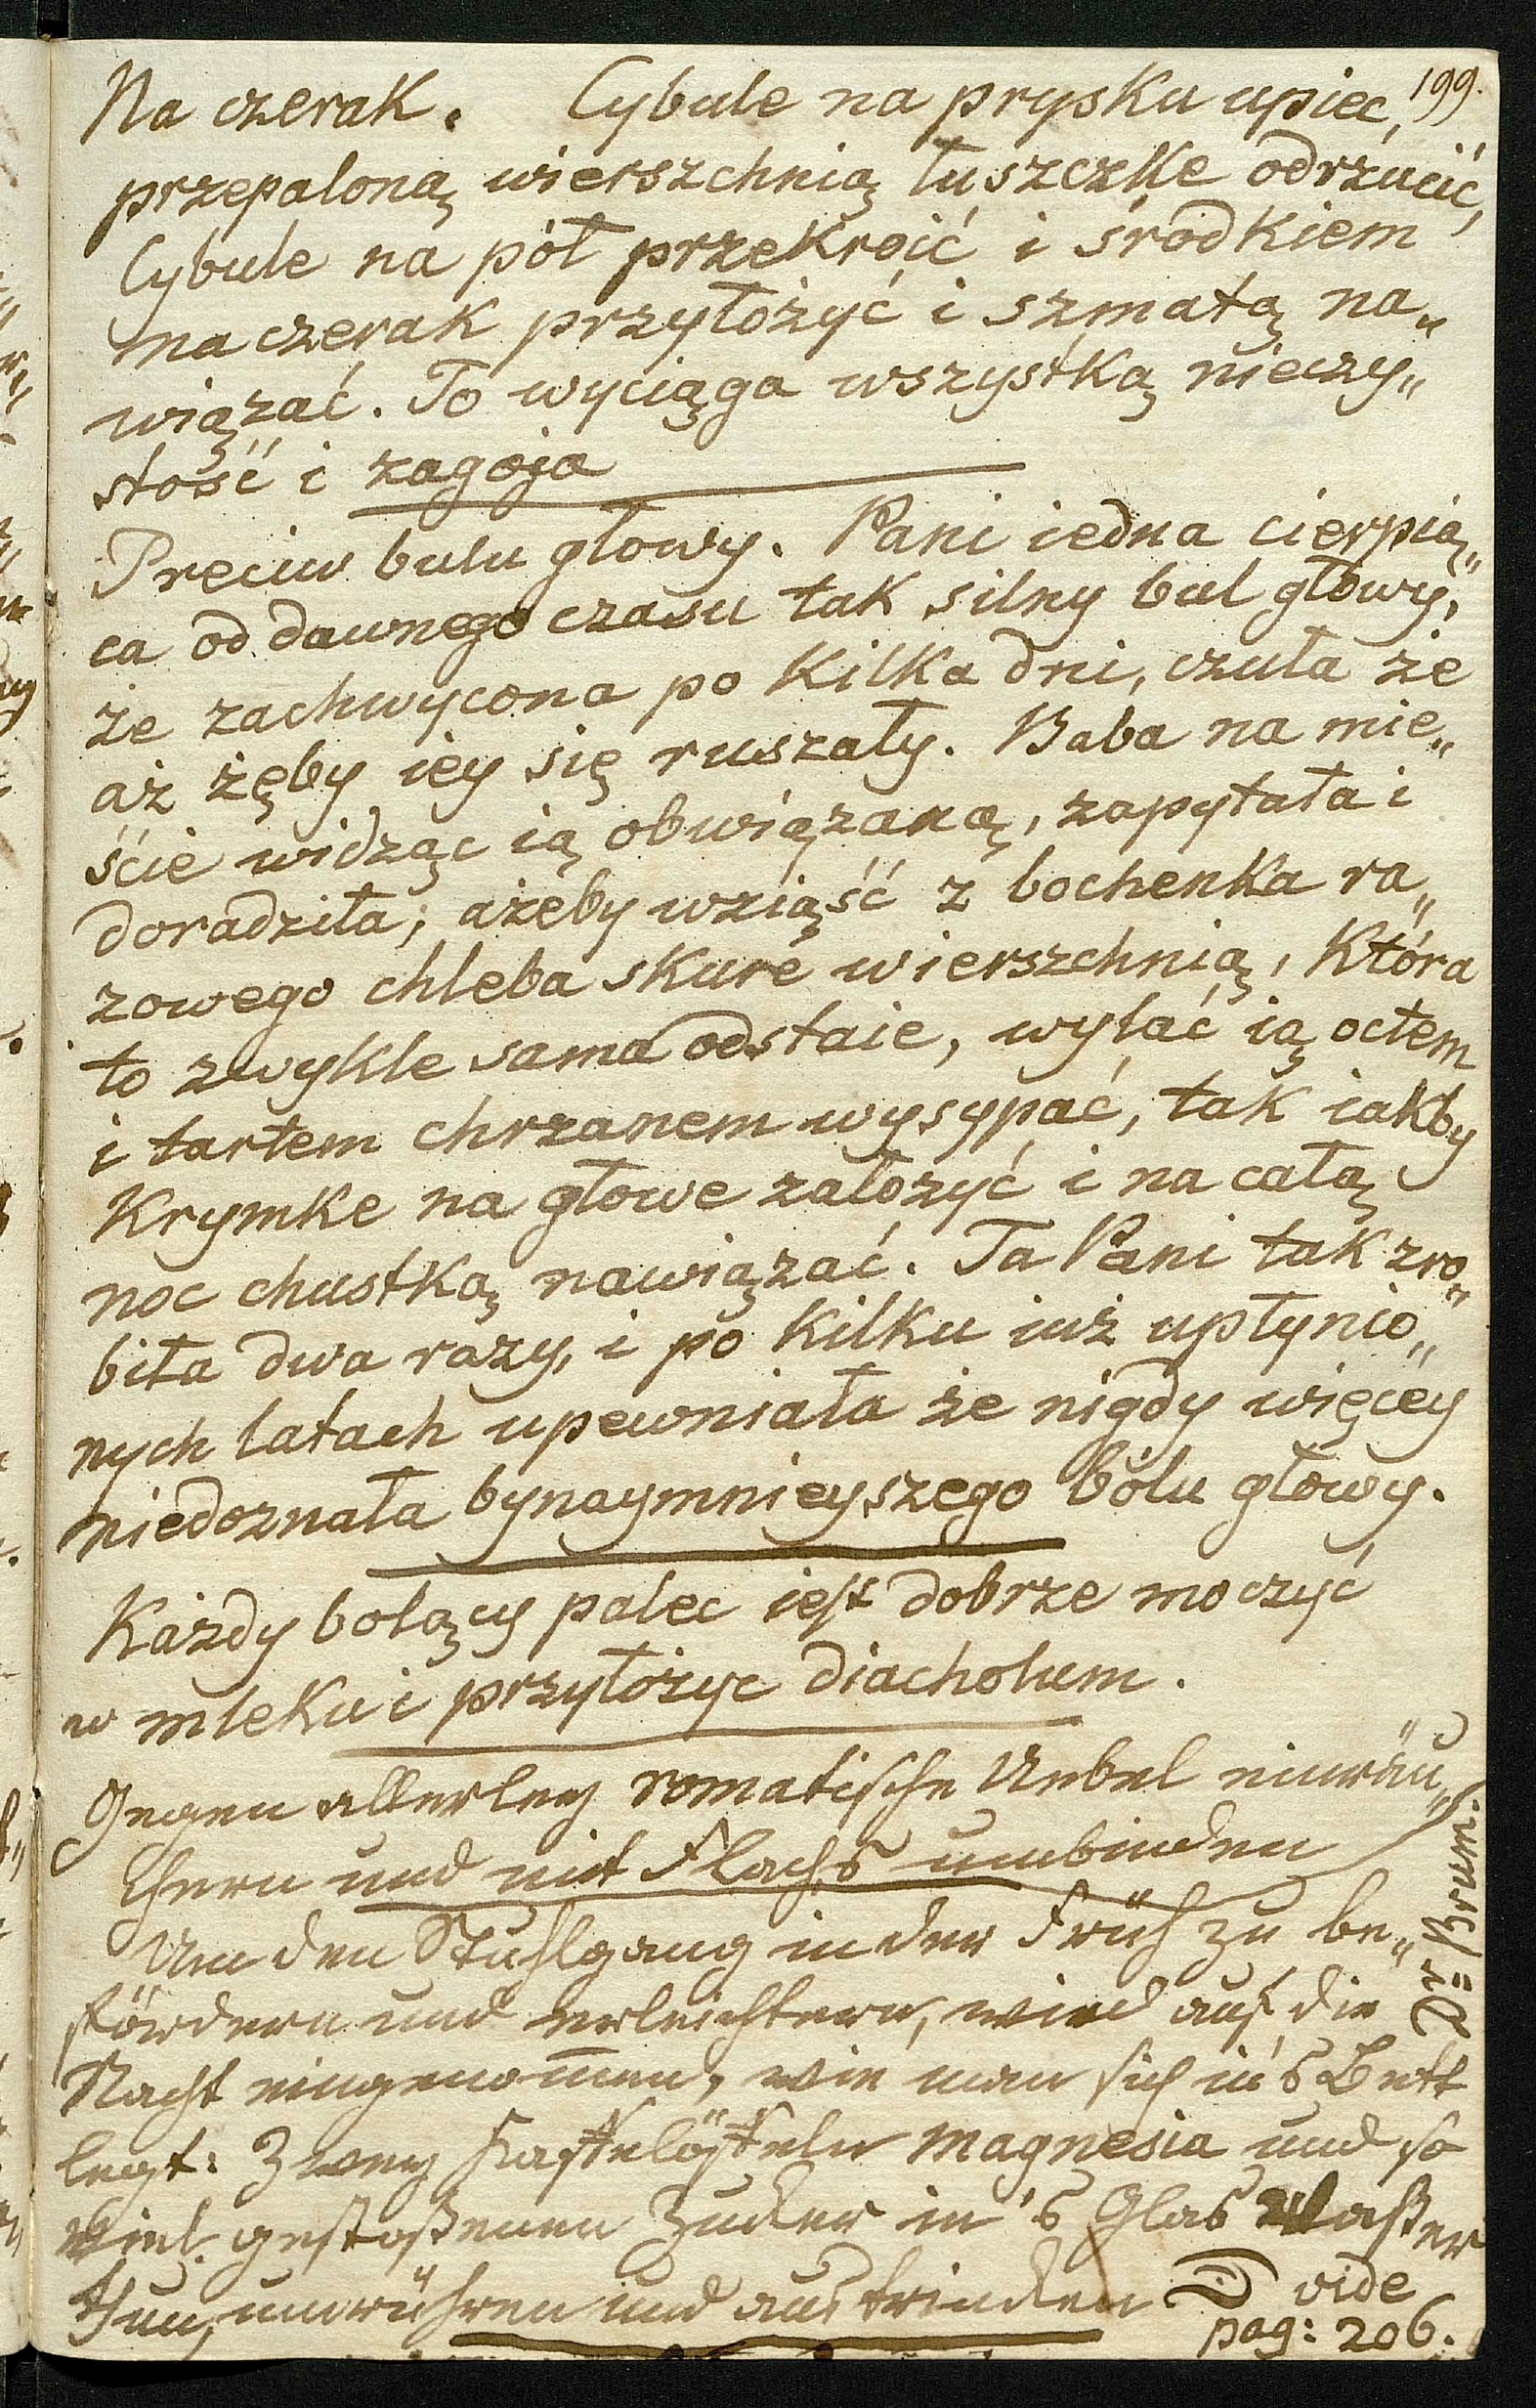 199.
Na czerak. Cybule na prysku upiec,
przepaloną wierszchnią łuszczke odrzucić,
Cybule na pół przekroić i środkiem
na czerak przyłożyć i szmatą na„
wiązać. To wyciąga wszystką nieczy„
stość i zagoja
Preciw bulu głowy. Pani iedna cierpią„
ca od dawnego czasu tak silny bul głowy,
że zachwycona po kilka dni, czuła że
aż żęby iey się ruszały. Baba na mie„
ście widząc ią obwiązaną, zapytała i
doradziła; ażeby wziąść z bochenka ra„
zowego chleba skure wierszchnią, która
to zwykle sama odstaie, wylać ią octem
i tartem chrzanem wysypać, tak iakby
Krymke na głowe założyć i na całą
noc chustką nawiązać. Ta Pani tak zro„
biła dwa razy, i po kilku iuż upłynio„
nych latach upewniała że nigdy więcey
niedoznała bynaymnieyszego bólu głowy.
Każdy bolący palec iest dobrze moczyć
w mleku i przyłożyc diacholum.
Gegen allerley romatische Uebel einräu„
chern und mit Flachs umbinden
Um den Stuhlgang in der Früh zu be„
fördern und erleichtern, wird auf die
Nacht eingenom̅en, wie man sich in's Bett
legt: Zwey Kaffelöffeln Magnesia und so
viel gestoßenen Zucker in's Glas Waßer
thun, umrühren und austrinken. vide
pag: 206.